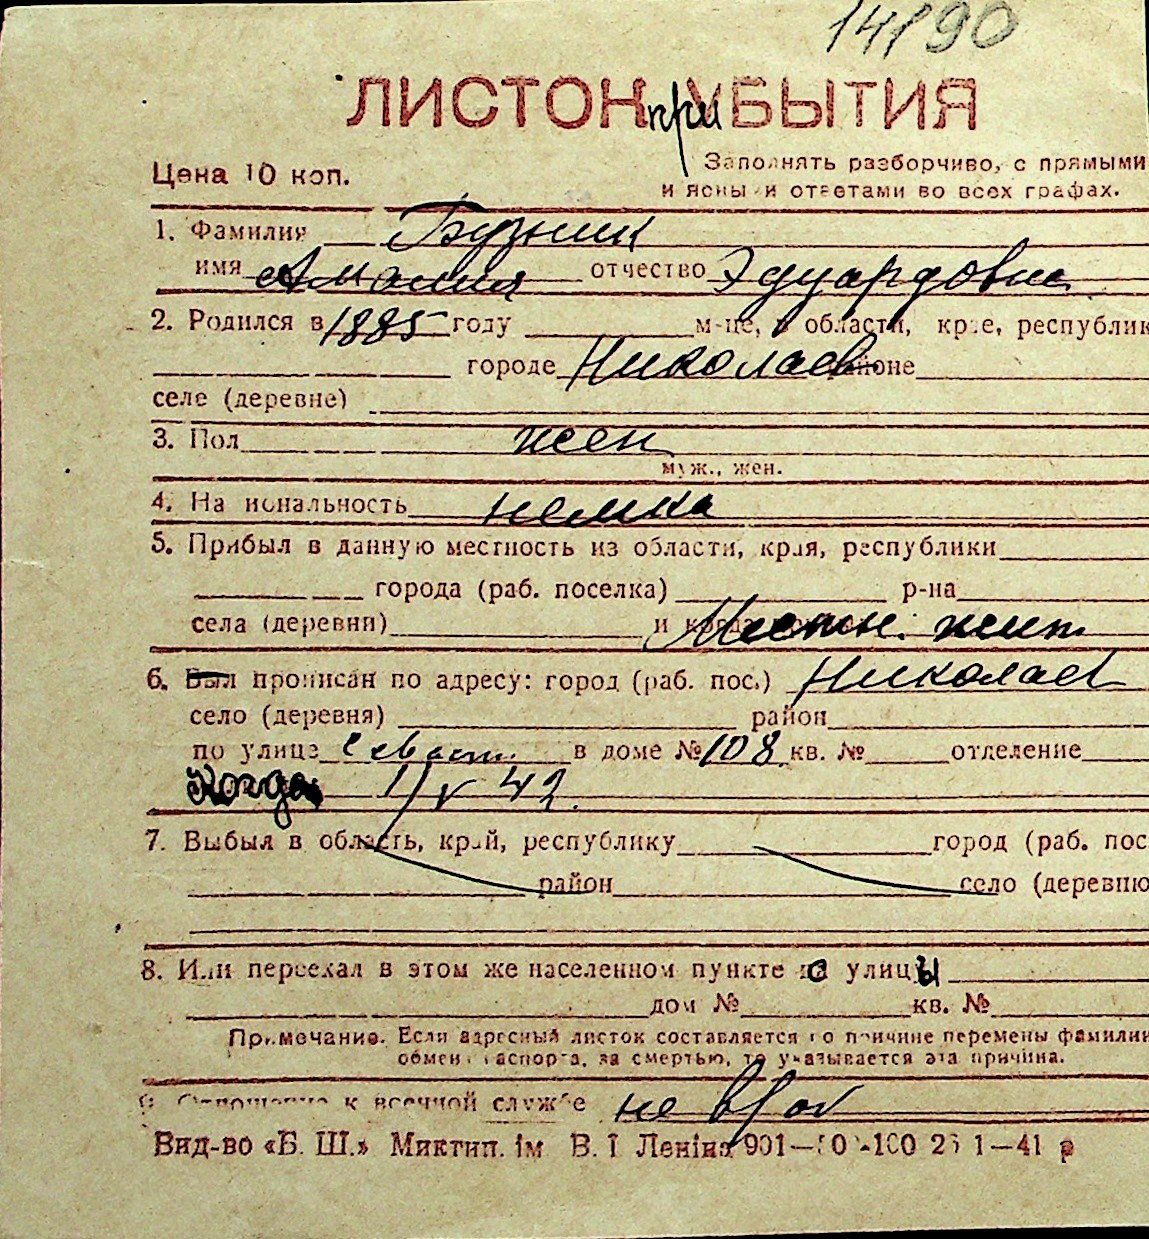 14190
ЛИСТОК при УБЫТИЯ
Цена 10 коп.
Заполнять разборчиво, с прямыми
и ясными ответами во всех графах.
1. Фамилия
имя Амалия отчество Эдуардовна
2. Родился в 1885 году м-це, в области, крае, республик
городе Николаев районе
селе (деревне)
3. Пол жен
муж., жен.
4. Национальность немка
5. Прибыл в данную местность из области, края, республики
города (раб. поселка) р-на
села (деревни) и когда Местн. жит.
6. Был прописан по адресу: город (раб. пос.) Николаев
село (деревня) район
по улице Севаст. в доме № 108 кв. № отделение
Когда 1/V 42.
7. Выбыл в область, край, республику город (раб. пос
район село (деревню
8. Или переехал в этом же населенном пункте с улицы
дом № кв. №
Примечание. Если адресный листок составляется по причине перемены фамилии
обмена паспорта, за смертью, то указывается эта причина.
9. Отношение к военной службе не в/об
Вид-во «Б. Ш.» Миктип. ім В. І Леніна 901— 1—41 р